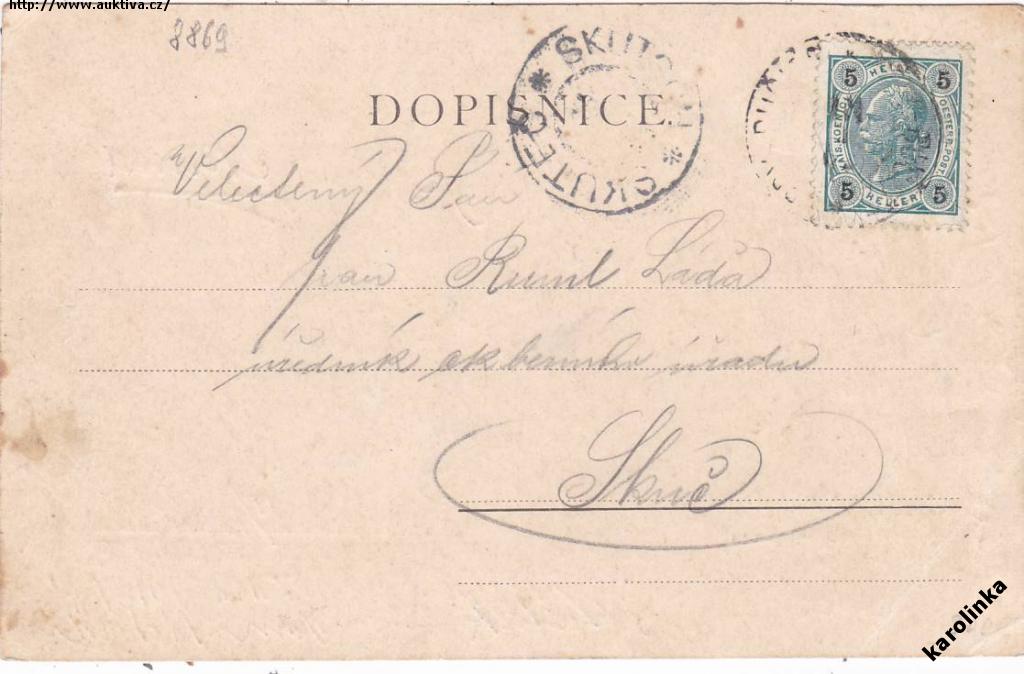 http://www.auktiva.cz/
8869
SKUTEČ * SKUTSCH *
5 HELLER 5
KAIS. KOENIGL. OESTERR. POST.
5 HELLER 5
DOPISNICE.
Velectěný Pan
pan Ruml Láďa
úředník okr berního úřadu
Skuč
karolinka